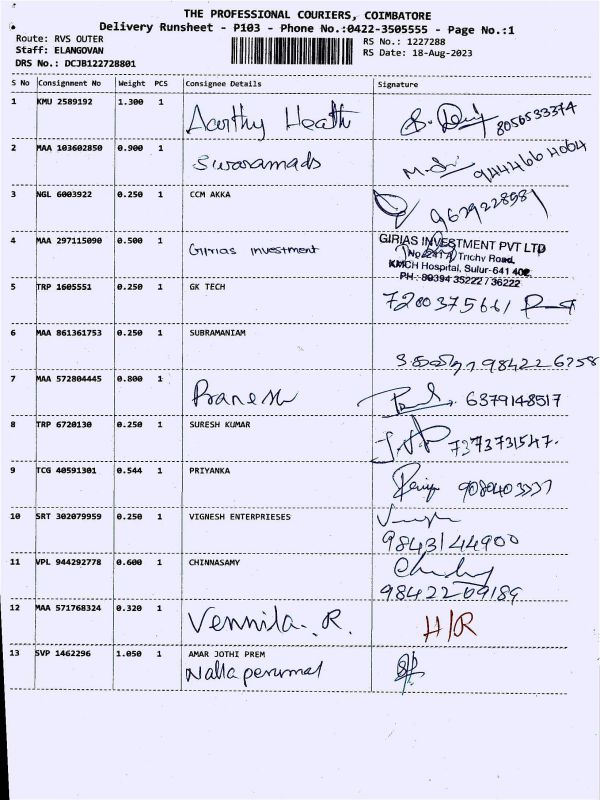 THE PROFESSIONAL COURIERS, COIMBATORE
Delivery Runsheet - P103 - Phone No.:0422-3505555 - Page No.:1
Route: RVS OUTER
RS No.: 1227288
Staff: ELANGOVAN
RS Date: 18-Aug-2023
DRS No.: DCJB122728801
S No Consignment No Weight PCS Consignee Details Signature
1 KMU 2589192 1.300 1 Aarthy Health 8056533374
2 MAA 103602850 0.900 1 9444664064
3 NGL 6003922 0.250 1 CCM AKKA 9629228981
4 MAA 297115090 0.500 1 Girias investment
GIRIAS INVESTMENT PVT LTD
Trichy Road,
KMCH Hospital, Sulur-641 402.
PH : 89394 35222 / 36222
5 TRP 1605551 0.250 1 GK TECH 7200375661
6 MAA 861361753 0.250 1 SUBRAMANIAM 984226258
7 MAA 572804445 0.800 1 Pranesh 6379148517
8 TRP 6720130 0.250 1 SURESH KUMAR 7373731547.
9 TCG 40591301 0.544 1 PRIYANKA
10 SRT 302079959 0.250 1 VIGNESH ENTERPRIESES
9843144900
11 VPL 944292778 0.600 1 CHINNASAMY
9842269189
12 MAA 571768324 0.320 1 Vennila. R. H/R
13 SVP 1462296 1.050 1 AMAR JOTHI PREM
Nalla perumal